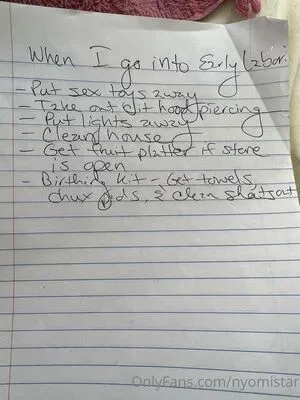 When I go into Early Labor:
- Put sex toys away
- Take out clit hood piercing
- Put lights away
- Clean house
- Get fruit platter if store
is open
- Birthing Kit - Get towels,
chux pads, & clean sheets out
OnlyFans.com/nyomistar